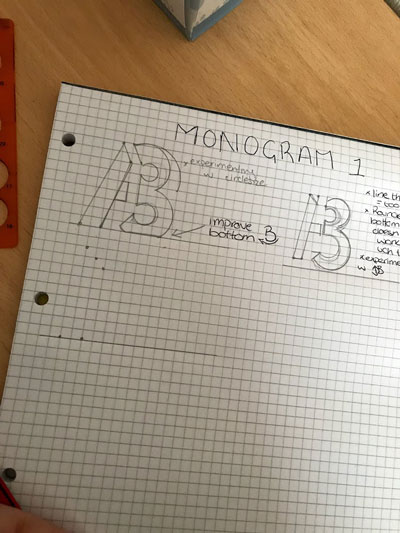 MONOGRAM 1
AB
x experimenting
w circle
improve
bottom = B
AB
x line th
= too
x Rounde
bottom
doesn
work
uch t
x experime
w gB